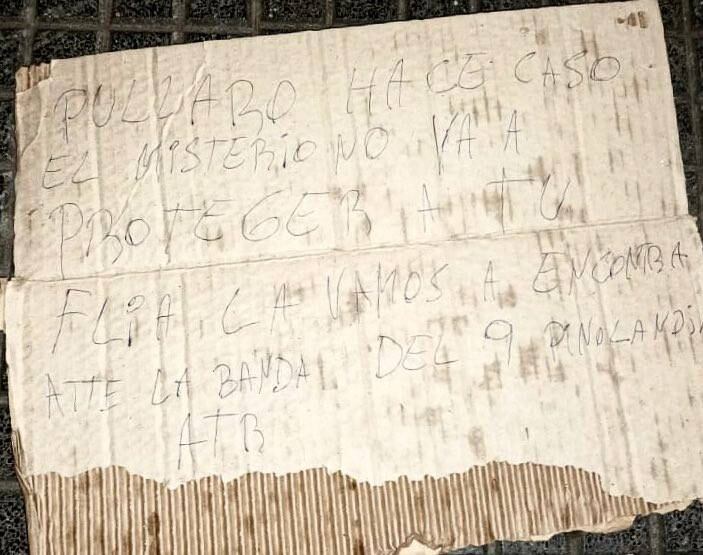 PULLARO HACE CASO
EL MISTERIO NO VA A
PROTEGER A TU
FLIA LA VAMOS A ENCONTRA
ATTE LA BANDA DEL 9 PINOLANDIA
ATR